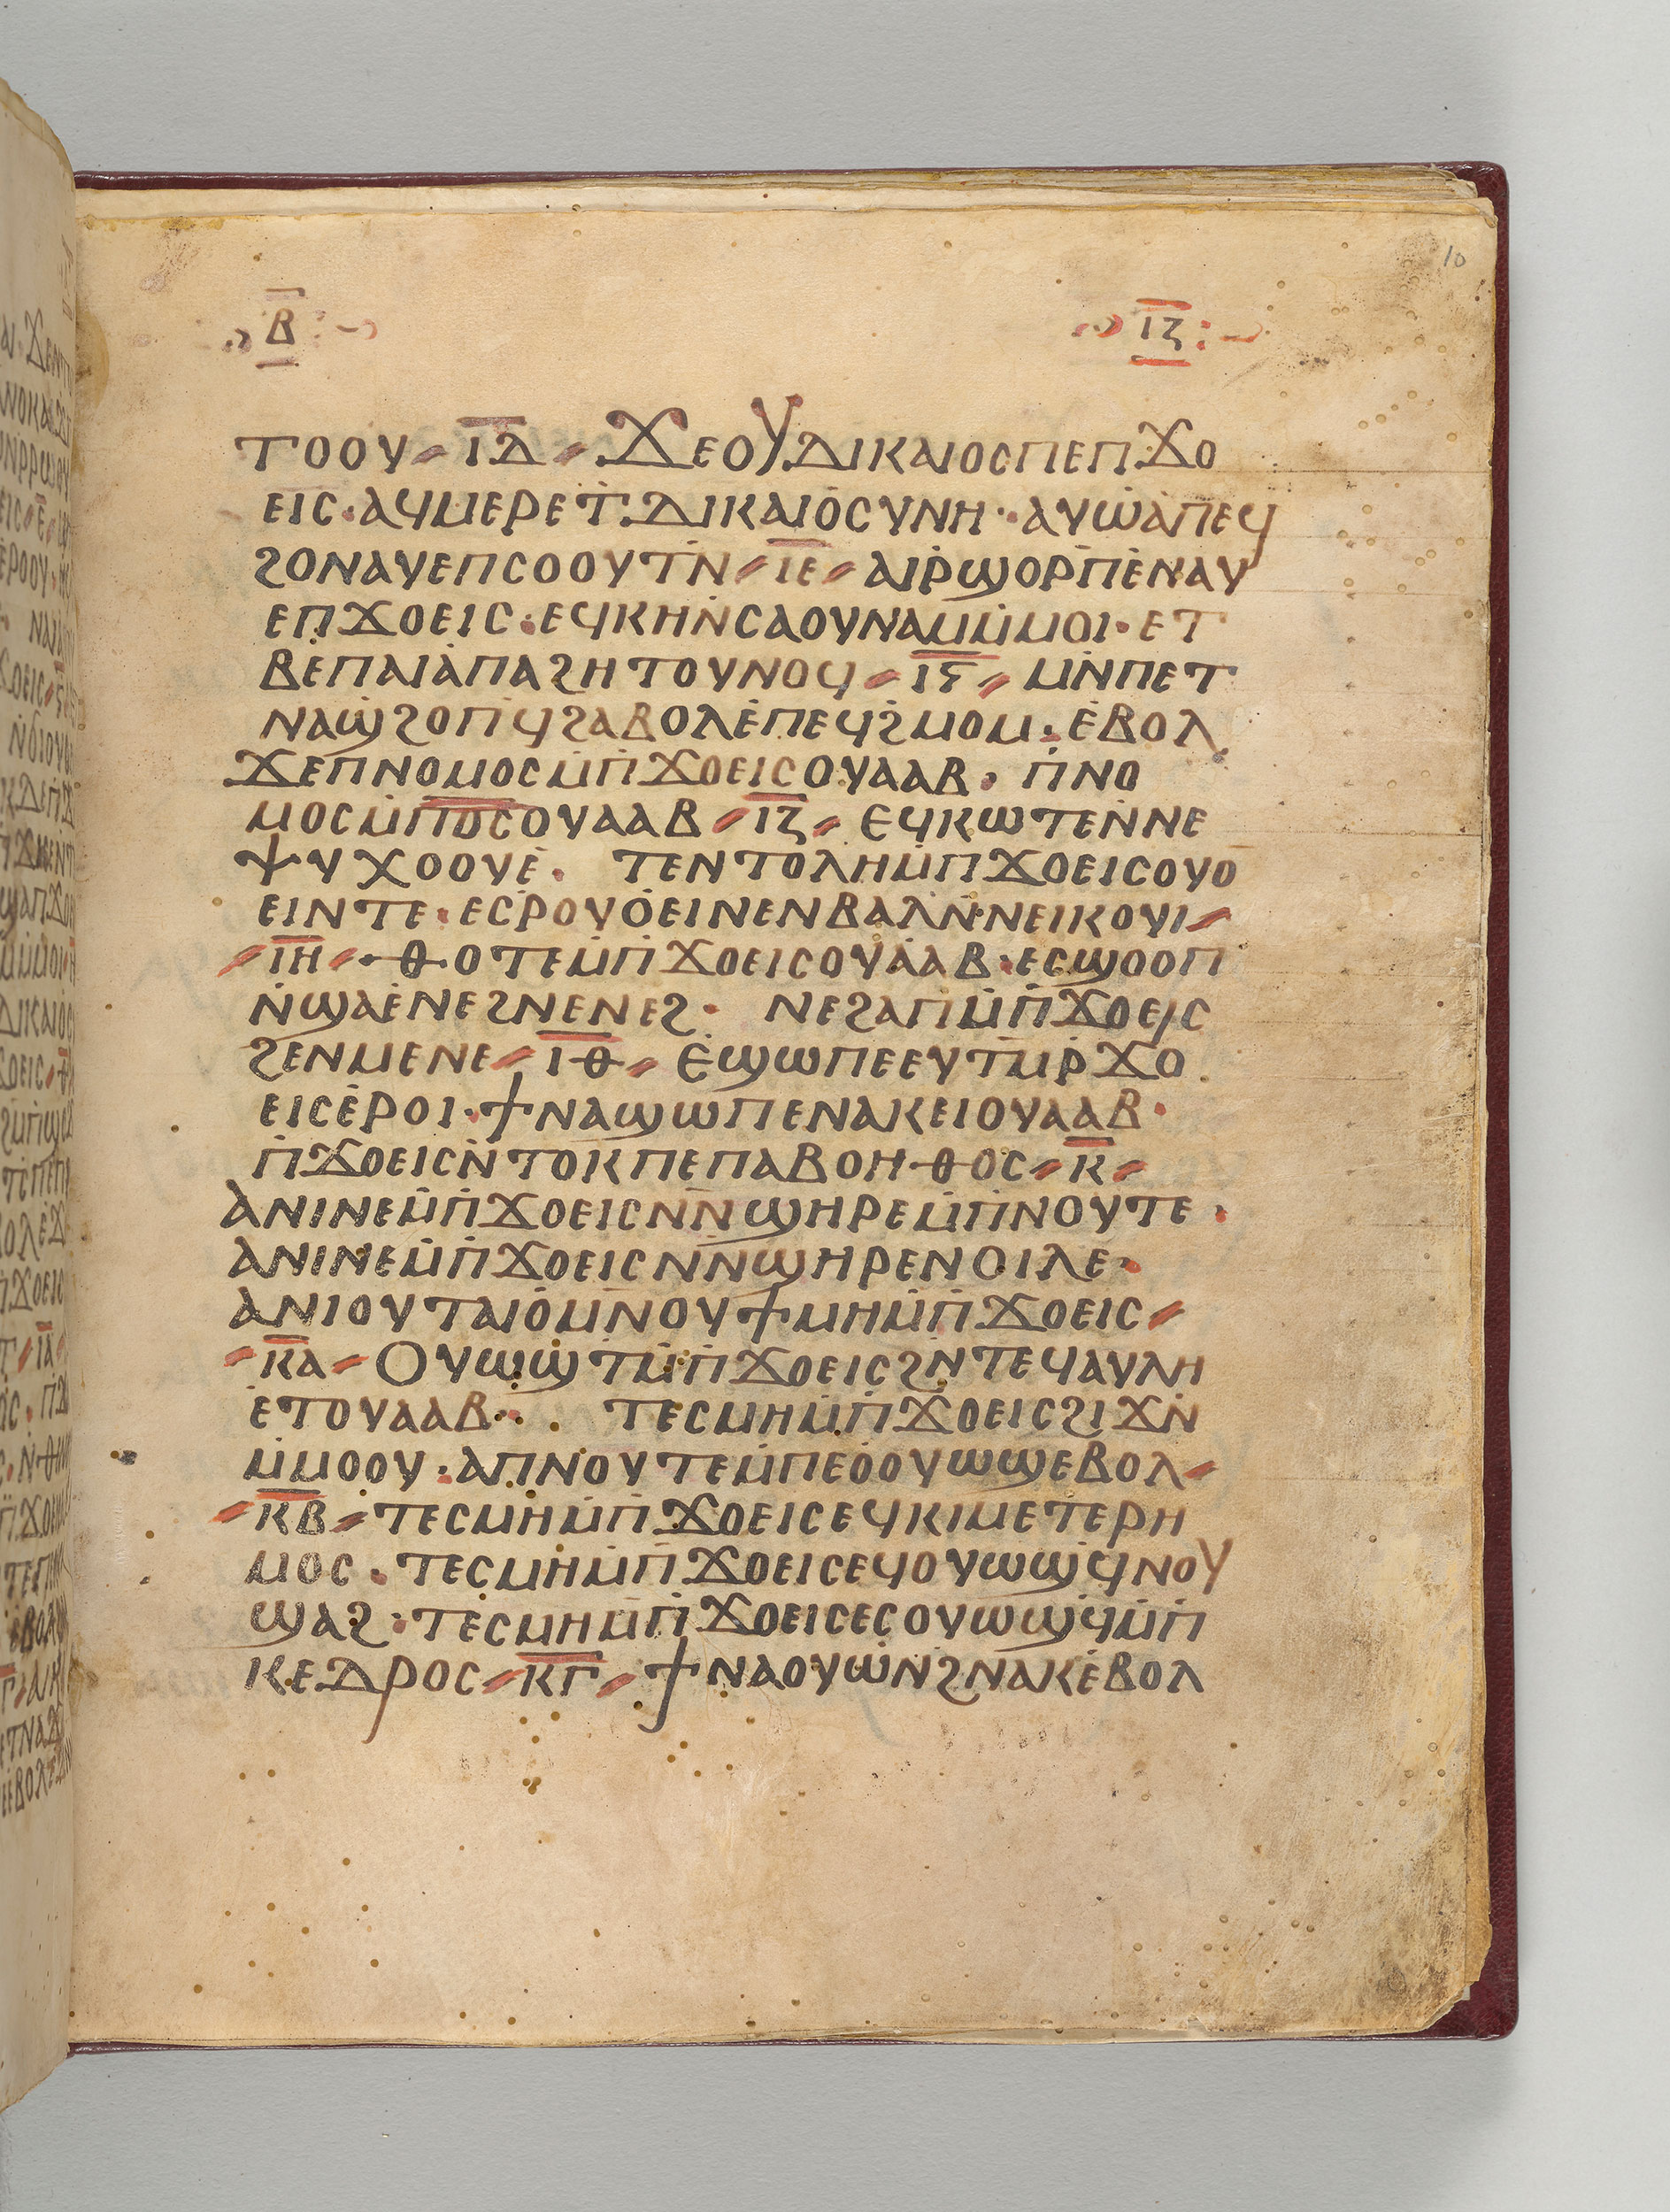 10
Ⲃ̅ ⲒⲌ̅
ⲦⲞⲞⲨ ⲒⲆ̅ ϪⲈⲞⲨⲆⲒⲔⲀⲒⲞⲤⲠⲈⲠϪⲞ
ⲈⲒⲤ·ⲀϤⲘⲈⲢⲈⲦⲆⲒⲔⲀⲒⲞⲤⲨⲚⲎ·ⲀⲨⲰⲀⲠⲈϤ
ϨⲞⲚⲀⲨⲈⲠⲤⲞⲞⲨⲦⲚ̇ ⲒⲈ̅ ⲀⲒⲢ̇ϢⲞⲢⲠ̇ⲈⲚⲀⲨ
ⲈⲠϪⲞⲈⲒⲤ·ⲈϤⲔⲎⲚ̇ⲤⲀⲞⲨⲚⲀⲘⲘ̇ⲘⲞⲒ·ⲈⲦ
ⲂⲈ̇ⲠⲀⲒⲀ̇ⲠⲀϨⲎⲦⲞⲨⲚⲞϤ ⲒⲊ̅ ⲘⲚ̇ⲠⲈⲦ
ⲚⲀϢϨⲞⲠϤ̇ϨⲀⲂⲞⲖⲈ̇ⲠⲈϤϨ̇ⲘⲞⲘ·Ⲉ̇ⲂⲞⲖ
ϪⲈⲠⲚⲞⲘⲞⲤⲘ̇ⲠϪⲞⲈⲒⲤⲞⲨⲀⲀⲂ· ⲠⲚⲞ
ⲘⲞⲤⲘ̇Ⲡ̅Ⲟ̅Ⲥ̅ⲞⲨⲀⲀⲂ ⲒⲌ̅ ⲈϤⲔⲰⲦⲈⲚ̇ⲚⲈ
ⲮⲨⲬⲞⲞⲨⲈ̇· ⲦⲈⲚⲦⲞⲖⲎⲘ̇ⲠϪⲞⲈⲒⲤⲞⲨⲞ̇
ⲈⲒⲚⲦⲈ·ⲈⲤⲢ̇ⲞⲨⲞ̇ⲈⲒⲚⲈⲚⲂⲀⲖⲚ̇ⲚⲈⲒⲔⲞⲨⲒ
ⲒⲎ̅ ⲐⲞⲦⲈⲘ̇ⲠϪⲞⲈⲒⲤⲞⲨⲀⲀⲂ·ⲈⲤϢⲞⲞⲠ
Ⲛ̇ϢⲀⲈ̇ⲚⲈϨⲚⲈⲚⲈϨ· ⲚⲈϨⲀⲠⲘ̇ⲠϪⲞⲈⲒⲤ
ϨⲈⲚⲘⲈⲚⲈ ⲒⲐ̅ ⲈϢⲰⲠⲈⲈⲨⲦⲘ̇Ⲣ̇ϪⲞ
ⲈⲒⲤⲈ̇ⲢⲞⲒ·ϮⲚⲀϢⲰⲠⲈⲚⲀⲔⲈⲒⲞⲨⲀⲀⲂ·
Ⲡ̇ϪⲞⲈⲒⲤⲚ̇ⲦⲞⲔⲠⲈⲠⲀⲂⲞⲎⲐⲞⲤ Ⲕ̅
ⲀⲚⲒⲚⲈⲘ̇ⲠϪⲞⲈⲒⲤⲚⲚ̇ϢⲎⲢⲈⲘ̇ⲠⲚⲞⲨⲦⲈ·
ⲀⲚⲒⲚⲈⲘ̇ⲠϪⲞⲈⲒⲤⲚⲚ̇ϢⲎⲢⲈⲚⲞⲒⲖⲈ·
ⲀⲚⲒⲞⲨⲦⲀⲒⲞ̇ⲘⲚ̇ⲞⲨϮⲘⲎⲘ̇ⲠϪⲞⲈⲒⲤ
ⲔⲀ̅ ⲞⲨⲰϢⲦⲘ̇ⲠϪⲞⲈⲒⲤϨⲚ̇ⲦⲈϤⲀⲨⲖⲎ
ⲈⲦⲞⲨⲀⲀⲂ·. ⲦⲈⲤⲘⲎⲘ̇ⲠϪⲞⲈⲒⲤϨⲒϪⲚ̇
Ⲙ̇ⲘⲞⲞⲨ·ⲀⲠⲚⲞⲨⲦⲈⲘ̇ⲠⲈⲞ̇ⲞⲨⲰϢⲈⲂⲞⲖ
ⲔⲂ̅ ⲦⲈⲤⲘⲎⲘ̇ⲠϪⲞⲈⲒⲤⲈϤⲔⲒⲘⲈⲦⲈⲢⲎ
ⲘⲞⲤ·ⲦⲈⲤⲘⲎⲘ̇ⲠϪⲞⲈⲒⲤⲈϤⲞⲨⲰϢϤ̇ⲚⲞⲨ
ϢⲀϨ·ⲦⲈⲤⲘⲎⲘ̇ⲠϪⲞⲈⲒⲤⲈⲤⲞⲨⲰϢϤ̇Ⲙ̇Ⲡ
ⲔⲈⲆⲢⲞⲤ ⲔⲄ̅ ϮⲚⲀⲞⲨⲰⲚ̇ϨⲚⲀⲔⲈ̇ⲂⲞⲖ